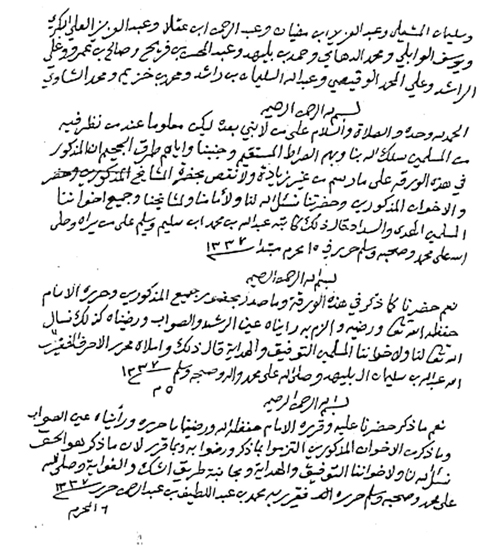 وسليمان المشعلي وعبد العزيز ابن سفيان وعبد الرحمن ابن عقلا وعبد العزيز العلي
ويوسف الوابلي ومحمد الدهامي وحمد بن بليهد وعبد المحسن بن فريح وصالح بن عمرو وعلي
الراشد وعلي الحمد الوقيصي وعبد الله السليمان بن راشد ومحمد بن خزيم ومحمد الشاوي
بسم الله الرحمن الرحيم
الحمد لله وحده والصلاة والسلام على من لا نبي بعده ليكن معلوما عند من نظر فيه
من المسلمين سلك الله بنا وبهم الصراط المستقيم وجنبنا واياهم طرق الجحيم ان المذكور
في هذه الورقة على ما رسم من غير زيادة ولا نقص بحضرة المشايخ المذكورين وحضر
والاخوان المذكورين وحضرتنا نسئل الله لنا ولأمامنا ولمشايخنا وجميع اخواننا
المسلمين الهدى والسداد قال ذلك كاتبه عبد الله بن محمد ابن سليم وسلم على من يراه وصلى
الله على محمد وصحبه وسلم حرر في ١٥ محرم مبتدا سنة ١٣٣٧
بسم الله الرحمن الرحيم
نعم حضرنا كما ذكر في هذه الورقة وما صدر بحضور جميع المذكورين وحرره الامام
حفظه الله تعالى ورضيه والزم به رأيناه عين الرشد والصواب ورضيناه كذلك نسال
الله تعالى لنا ولاخواننا المسلمين التوفيق والهداية قال ذلك واملاه محرر الاحرف الفقير
الله عبد الله بن سليمان ال بليهد وصلى الله على محمد واله وصحبه وسلم ١٣٣٧
٥ م
بسم الله الرحمن الرحيم
نعم ما ذكر حضرنا عليه وقرره الامام حفظه الله ورضينا ما حرره ورأيناه عين الصواب
وما ذكر من الاخوان المذكورين التزموا بما ذكر ورضوا به وبما قرر لان ما ذكر هو الحق
نسئل الله لنا ولاخواننا التوفيق والهداية ومجانبة طريق الشك والغواية وصلى الله
على محمد وصحبه وسلم حرره الفقير محمد بن عبد اللطيف بن عبد الرحمن حرر سنة ١٣٣٧
٦ المحرم